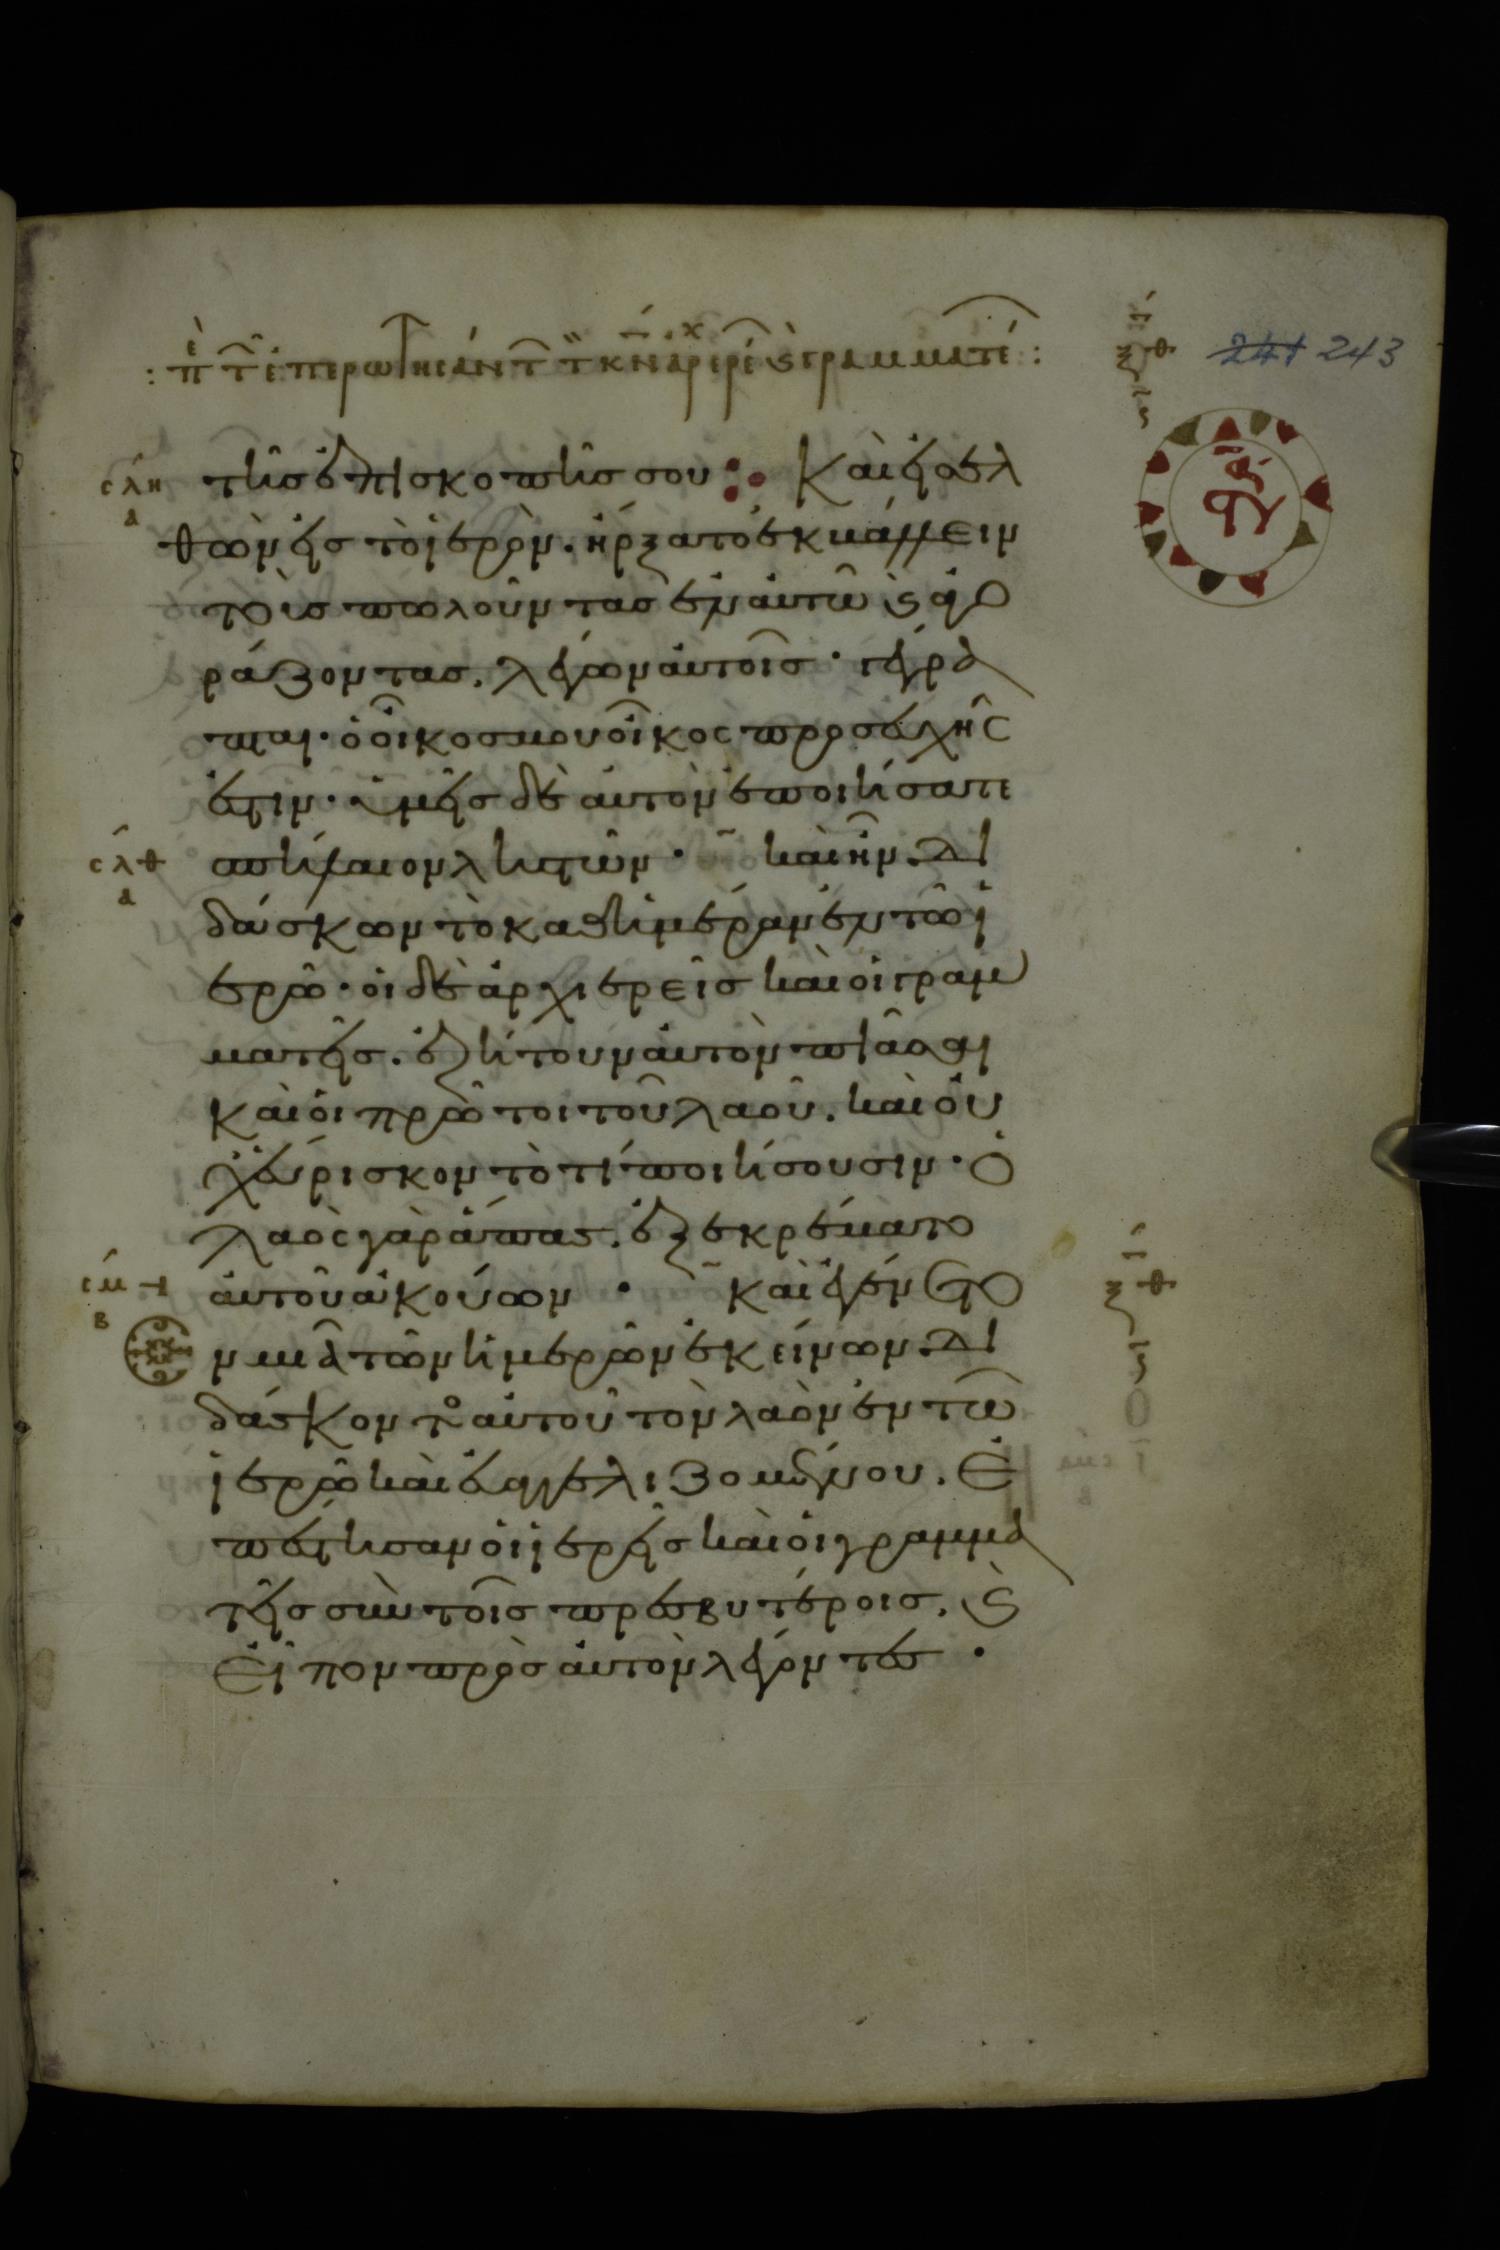 : πε τ ἐπερωτησάντ τ κν αρχιερέ ϛ γραμματέ :
241 243
σλη
α
τῆς ἐπισκοπῆς σου : Καὶ εἰσελ
θὼν εἰς τὸ ἱερὸν. ἤρξατο ἐκβάλλειν
τοὺς πωλοῦντας ἐν αὐτῶ ϛ ἀγο
ράζοντας. λέγων αὐτοῖς · γέγρα
πται · ὁ οἶκος μου οἶκος προσευχῆς
ἐστιν · ὑμεῖς δὲ αὐτὸν ἐποιήσατε
σλθ
α
σπήλαιον ληστῶν · καὶ ἦν δι
δάσκων τὸ καθημέραν ἐν τῶ ἱ
ερῶ · οἱ δὲ ἀρχιερεῖς καὶ οἱ γραμ
ματεῖς. ἐζήτουν αὐτὸν πιάσαι
καὶ οἱ πρῶτοι τοῦ λαοῦ. καὶ οὐ
χ εὕρισκον τὸ τί ποιήσουσιν · ὁ
λαὸς γὰρ ἅπας. ἐξεκρέματο
σμ
β
αὐτοῦ ἀκούων · καὶ ἐγένετο
ἐν μιᾶ τῶν ἡμερῶν ἐκείνων. δι
δάσκοντος αὐτοῦ τὸν λαὸν ἐν τῶ
ἱερῶ καὶ εὐαγγελιζομένου. ἐ
πέστησαν οἱ ἱερεῖς καὶ οἱ γραμμα
τεῖς σὺν τοῖς πρεσβυτέροις. ϛ
εἶπον πρὸς αὐτὸν λέγοντες ·